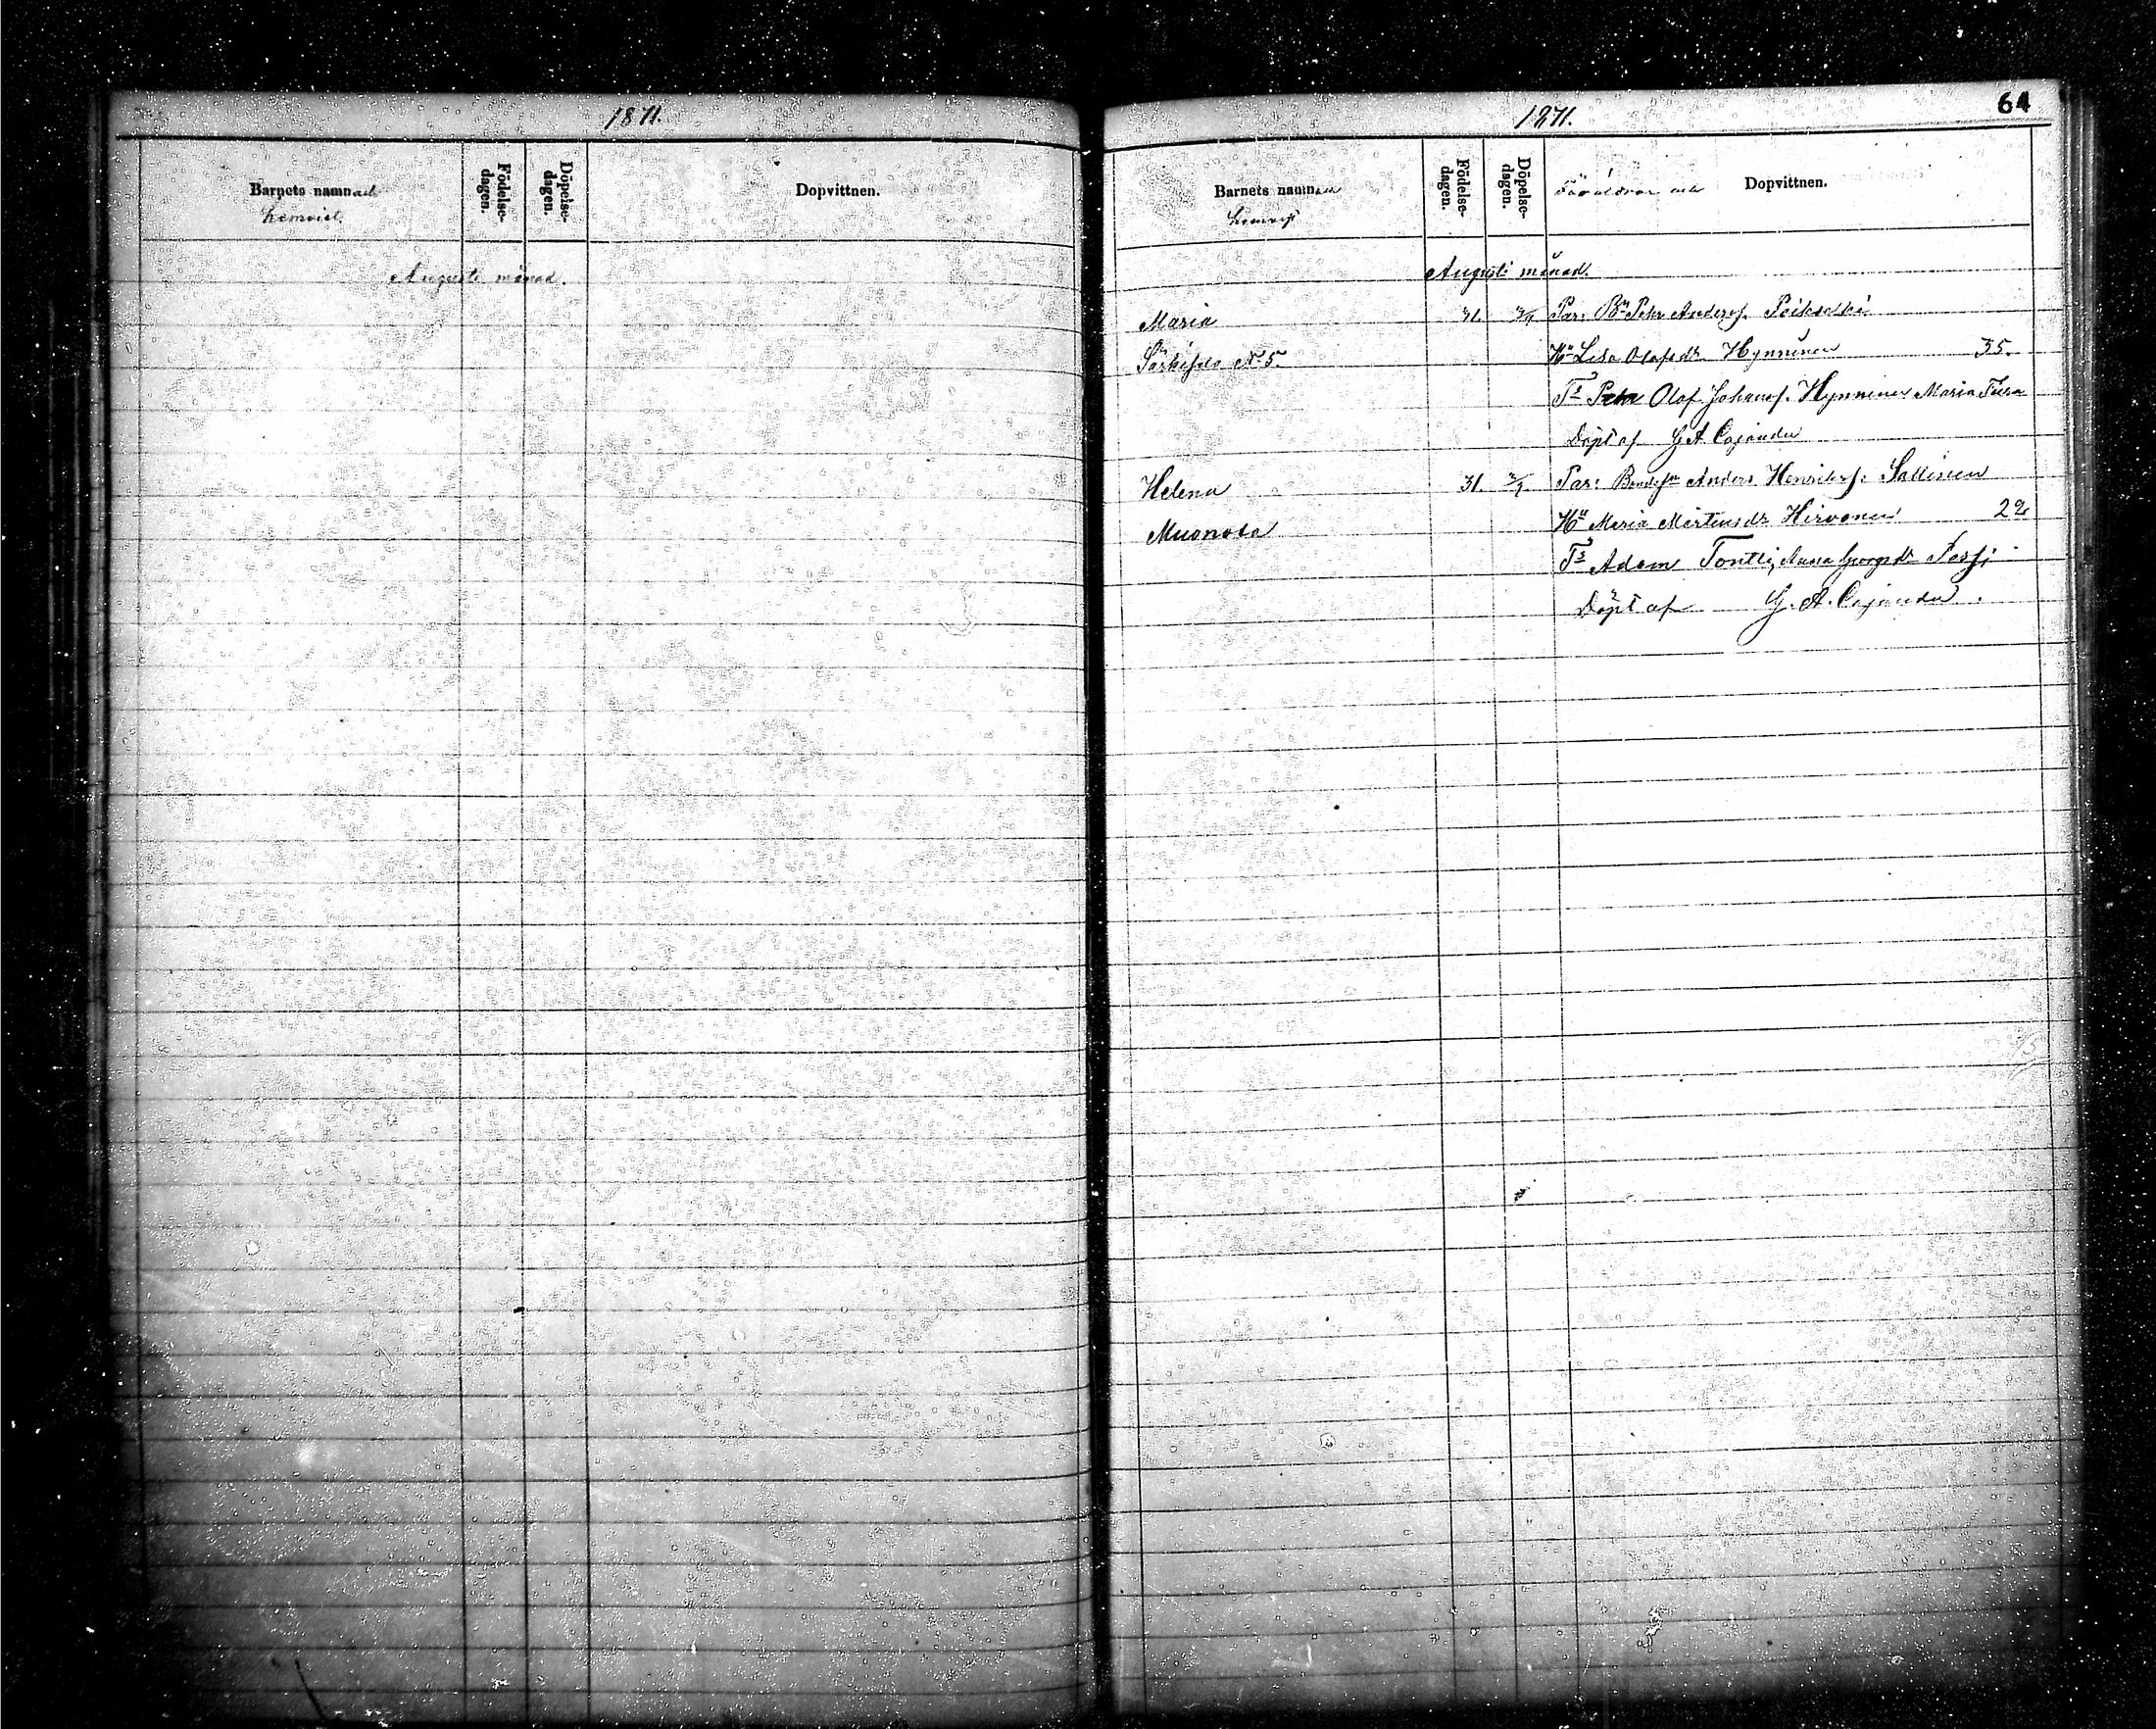 1871.
Barnets namn och
hemvist.
Födelse-
dagen.
Döpelse-
dagen.
Dopvittnen.
Augusti månad.
1871.
64
Barnets namn och
hemvist
Födelse-
dagen.
Döpelse-
dagen.
Föräldrar och Dopvittnen.
Augusti månad.
Maria 31. 3/9 Par: Bn Pehr Andersf.
No 5. Hu Lisa Olofsdr Hynninen 35.
Ts Olof Johansf. Hynninen Maria
Döpt af G A Cajander
Helena 31. 3/9 Par: Bondesn Anders Henriksf. Sallinen
Muonola Hu Maria Mårtensdr Hirvonen 22
Ts Adam Tontti, Anna Georgsdr
Döpt af G. A. Cajander.